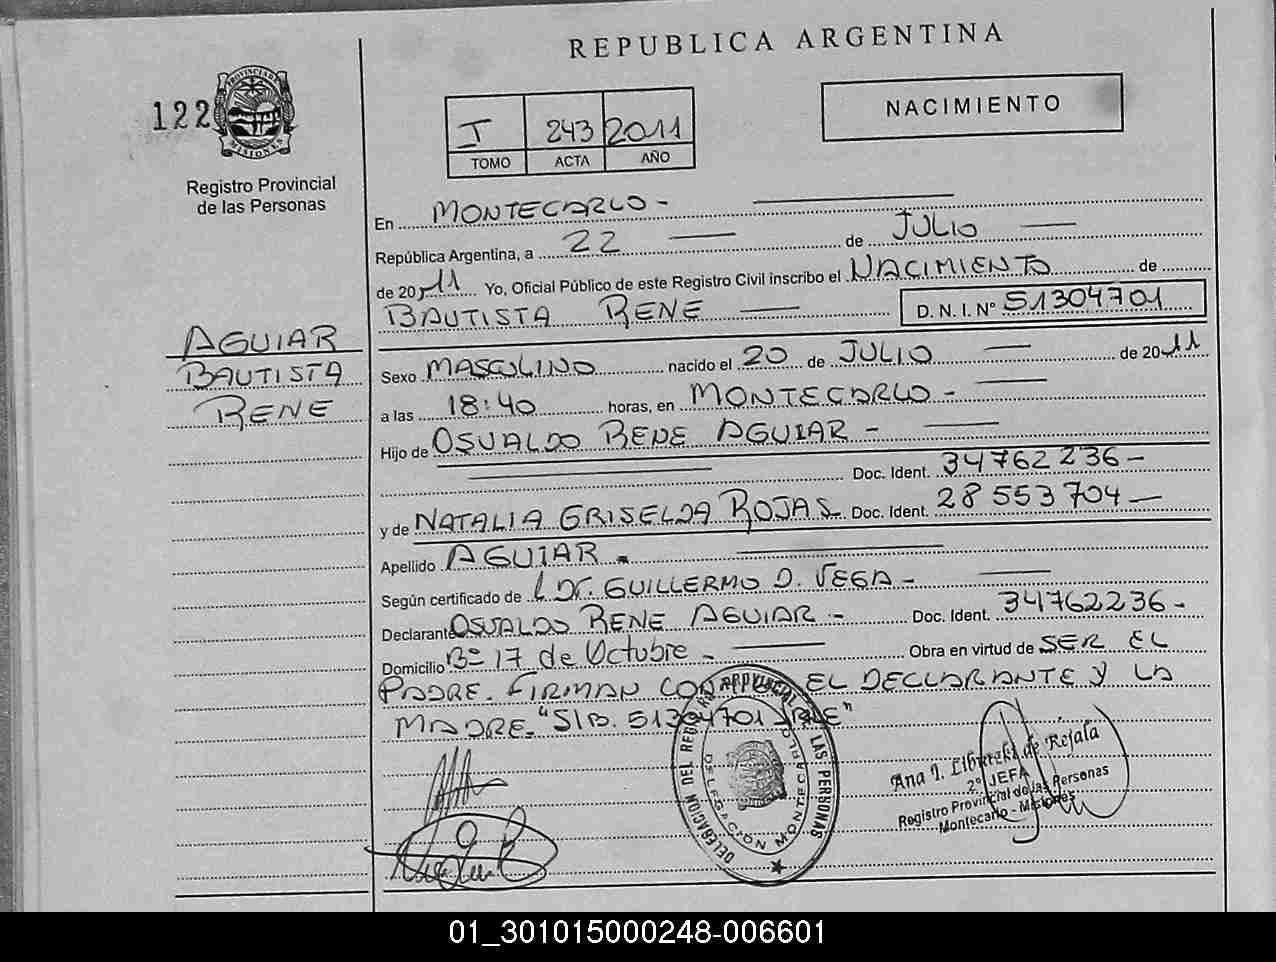 REPUBLICA ARGENTINA
122
PROVINCIA DE MISIONES
Registro Provincial
de las Personas
I 243 2011
TOMO ACTA AÑO
NACIMIENTO
En MONTECARLO -
República Argentina, a 22 de JULIO
de 2011 Yo, Oficial Público de este Registro Civil inscribo el NACIMIENTO de
BAUTISTA RENE D.N.I.Nº 51304701
AGUIAR
BAUTISTA
RENE
Sexo MASCULINO nacido el 20 de JULIO de 2011
a las 18:40 horas, en MONTECARLO -
Hijo de OSVALDO RENE AGUIAR -
Doc. Ident. 34762236 -
y de NATALIA GRISELDA ROJAS Doc. Ident. 28 553 704 -
Apellido AGUIAR -
Según certificado de DR. GUILLERMO D. VEGA -
Declarante OSVALDO RENE AGUIAR - Doc. Ident. 34762236 -
Domicilio Bº 17 de Octubre - Obra en virtud de SER EL
PADRE. FIRMAN EL DECLARANTE Y LA
MADRE. "S/B. 51304701 VALE"
DELEGACION DEL REGISTRO PROVINCIAL DE LAS PERSONAS
DELEGACIÓN MONTECARLO
Ana I. de Rejala
2º JEFA
Registro Provincial de las Personas
Montecarlo - Misiones
01_301015000248-006601